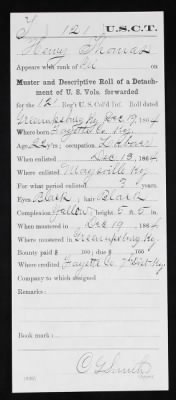 T | 121 | U.S.C.T.
Henry Thomas
Appears with rank of Pvt on
Muster and Descriptive Roll of a Detach-
ment of U. S. Vols. forwarded
for the 121 Reg't U.S. Col'd Inf. Roll dated
Greensburg Ky Dec 19, 1864
Where born Fayette Co. Ky.
Age 22 y'rs; occupation Laborer
When enlisted Dec 13, 1864
Where enlisted Maysville Ky
For what period enlisted 3 years.
Eyes Black; hair Black
Complexion Yellow; height 5 ft. 5 in.
When mustered in Dec 19, 1864
Where mustered in Greensburg Ky
Bounty paid $ 100; due $ 100
Where credited Fayette Co. 7th Dist Ky
Company to which assigned
Remarks:
Book mark:
C G Smith